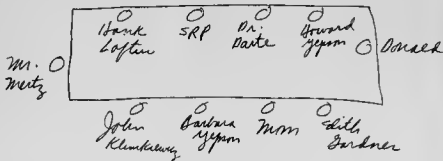 Hank Loftin
SRP
Dr. Darte
Howard Yepson
Donald
Mr. Mertz
John Klimkiewicz
Barbara Yepson
Mom
Edith Gardner